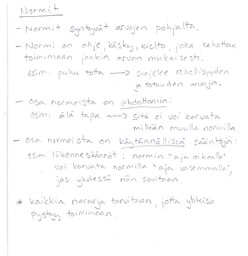 Normit
- Normit syntyvät arvojen pohjalta.
- Normi on ohje, käsky, kielto, joka kehottaa
toimimaan jonkin arvon mukaisesti.
esim. puhu totta → suojelee rehellisyyden
ja totuuden arvoja.
- Osa normeista on ehdottomia:
esim. älä tapa → sitä ei voi korvata
millään muulla normilla
- osa normeista on käytännöllisiä sääntöjä:
esim. liikennesäännöt: normin "aja oikealla"
voi korvata normilla "aja vasemmalla",
jos yhdessä niin sovitaan.
* kaikkia normeja tarvitaan, jotta yhteisö
pystyy toimimaan.